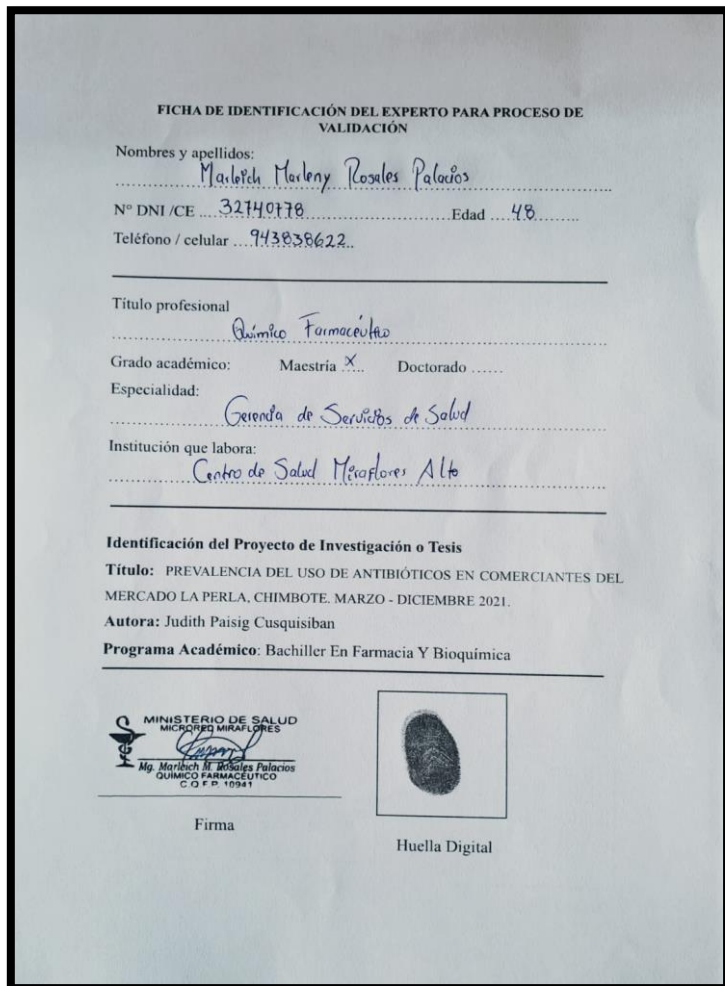 FICHA DE IDENTIFICACIÓN DEL EXPERTO PARA PROCESO DE
VALIDACIÓN
Nombres y apellidos:
Marleich Marleny Rosales Palacios
N° DNI /CE ....32740778............Edad ....48.........
Teléfono / celular ....943838622..
Título profesional
Químico Farmacéutico
Grado académico: Maestría .X... Doctorado ......
Especialidad:
Gerencia de Servicios de Salud
Institución que labora:
Centro de Salud Miraflores Alto
Identificación del Proyecto de Investigación o Tesis
Título: PREVALENCIA DEL USO DE ANTIBIÓTICOS EN COMERCIANTES DEL
MERCADO LA PERLA, CHIMBOTE. MARZO - DICIEMBRE 2021.
Autora: Judith Paisig Cusquisiban
Programa Académico: Bachiller En Farmacia Y Bioquímica
MINISTERIO DE SALUD
MICRORED MIRAFLORES
Mg. Marleich M. Rosales Palacios
QUIMICO FARMACEUTICO
C.Q.F.P. 10941
Firma
Huella Digital